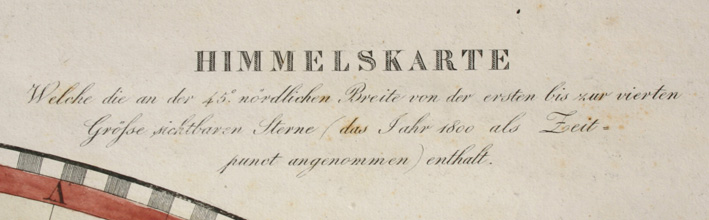 HIMMELSKARTE
Welche die an der 45.° nördlichen Breite von der ersten bis zur vierten
Größe sichtbaren Sterne (das Jahr 1800 als Zeit=
punct angenommen) enthält.
A